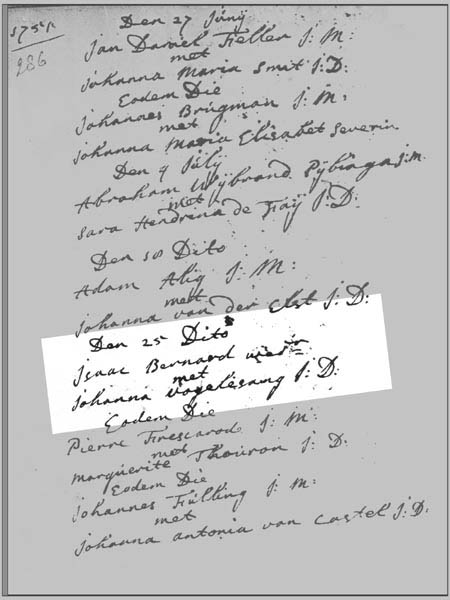 286
Den 27 Junÿ
Jan Daniel Feller J: M:
met
Johanna Maria Smit J: D:
Eodem Die
Johannes Brugman J: M:
met
Johanna Maria Elisabet Severin
Den 9 Julÿ
Abraham Wÿbrand J: M:
met
Sara Hendrina de J: D:
Den 10 Dito
Adam Alig J: M:
met
Johanna van der Elst J: D:
Den 25 Dito
Isaac Bernard wedr
met
Johanna Vogelesang J: D:
Eodem Die
Pierre J: M:
met
Marguerite Thouron J: D:
Eodem Die
Johannes Fülling J: M:
met
Johanna Antonia van Castel J: D: